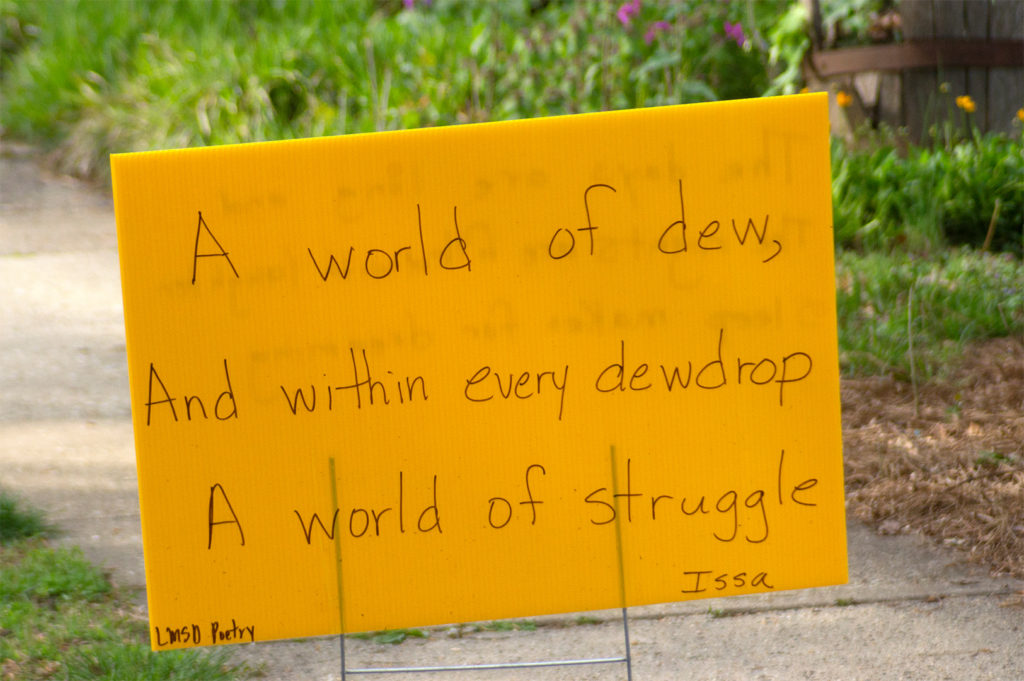 A world of dew,
And within every dewdrop
A world of struggle
Issa
LMSD Poetry